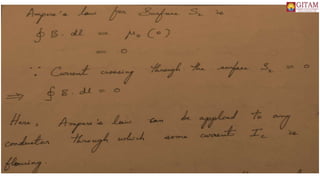 Ampere's law for Surface S₂ is
∮ B. dl = μ₀ (0)
= 0
∵ Current crossing through the surface S₂ = 0
⇒ ∮ B. dl = 0
Here, Ampere's law can be applied to any
conductor through which some current I_c is
flowing.
GITAM